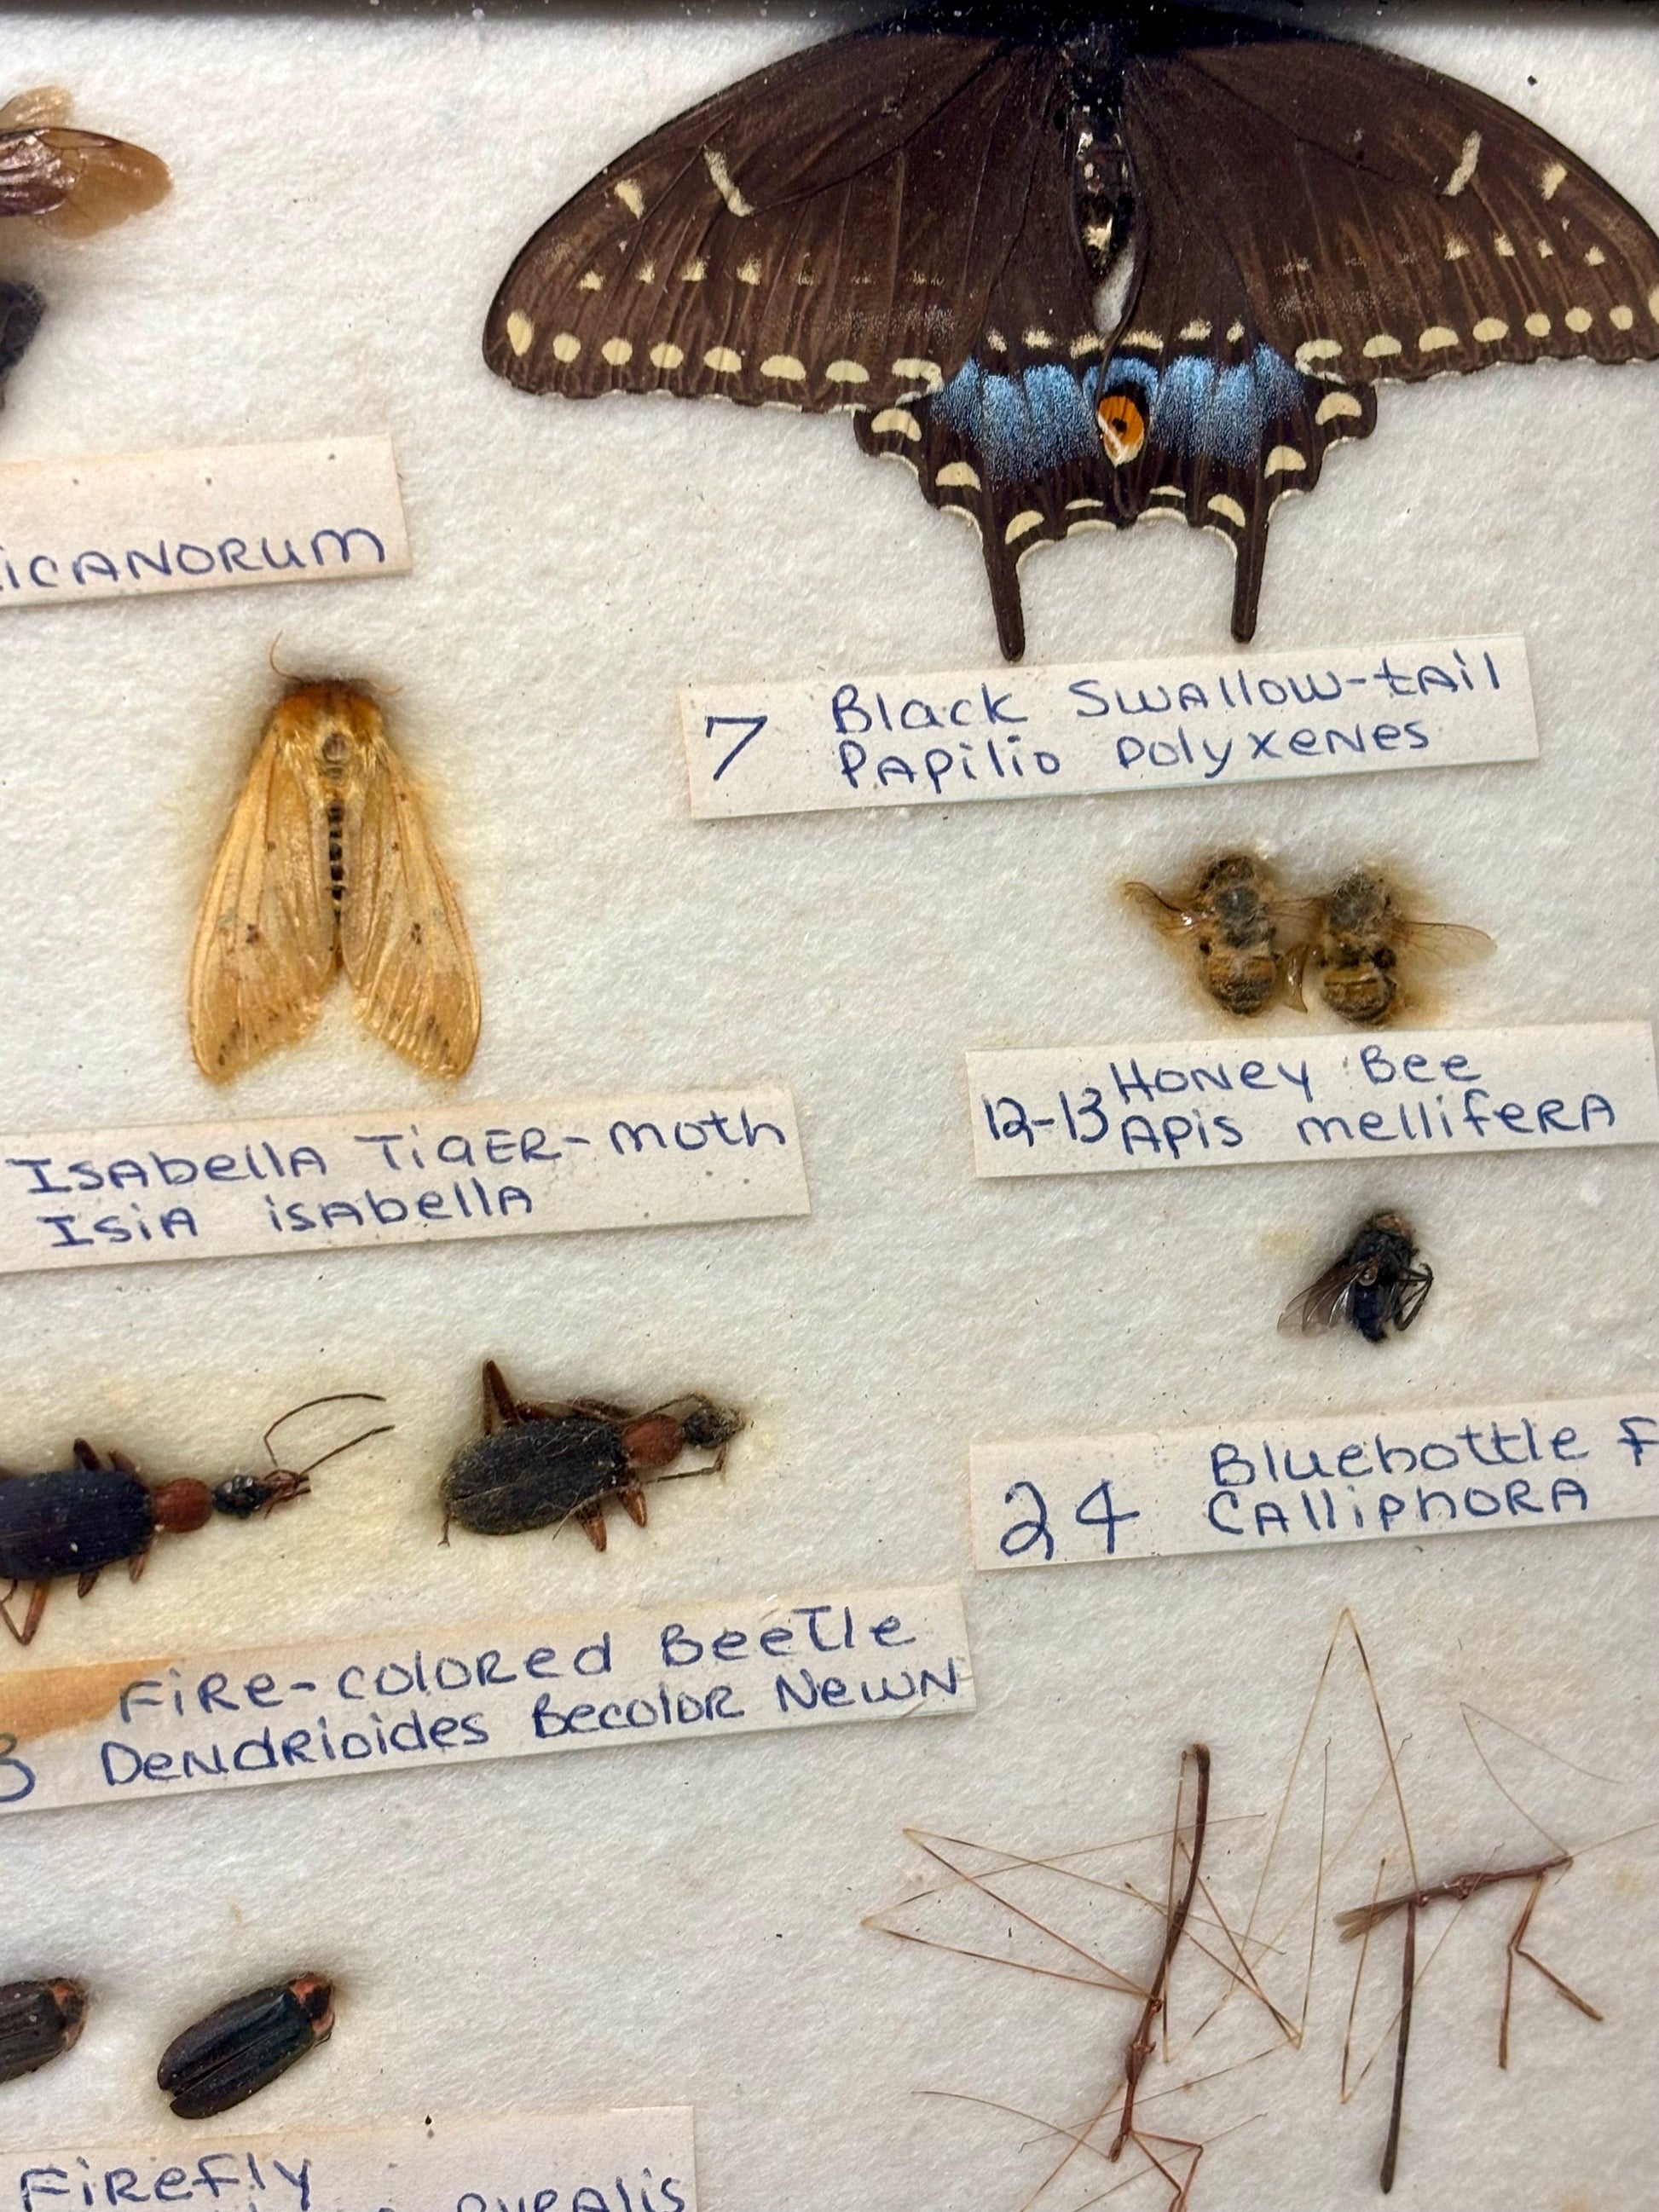 icanorum
7 Black Swallow-tail
Papilio polyxenes
Isabella Tiger-moth
Isia isabella
12-13 Honey Bee
Apis mellifera
24 Bluebottle F
Calliphora
Fire-colored Beetle
3 Dendrioides Becolor Newn
Firefly
pyralis